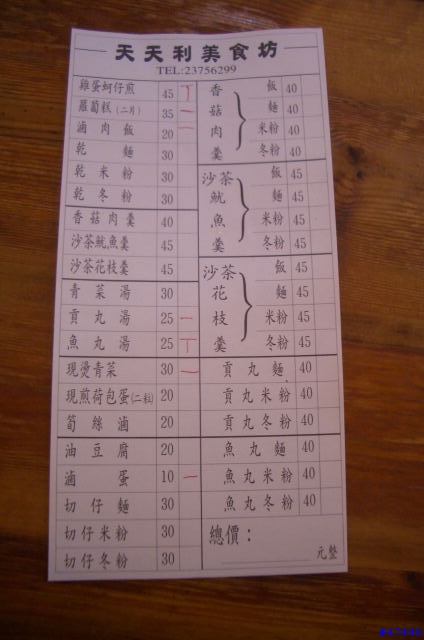 天天利美食坊
TEL:23756299
雞蛋蚵仔煎 45
蘿蔔糕(二片) 35
滷肉飯 20
乾麵 30
乾米粉 30
乾冬粉 30
香菇肉羹 40
沙茶魷魚羹 45
沙茶花枝羹 45
青菜湯 30
貢丸湯 25
魚丸湯 25
現燙青菜 30
現煎荷包蛋(二粒) 20
筍絲滷 20
油豆腐 20
滷蛋 10
切仔麵 30
切仔米粉 30
切仔冬粉 30
香菇肉羹
飯 40
麵 40
米粉 40
冬粉 40
沙茶魷魚羹
飯 45
麵 45
米粉 45
冬粉 45
沙茶花枝羹
飯 45
麵 45
米粉 45
冬粉 45
貢丸麵 40
貢丸米粉 40
貢丸冬粉 40
魚丸麵 40
魚丸米粉 40
魚丸冬粉 40
總價：
元整